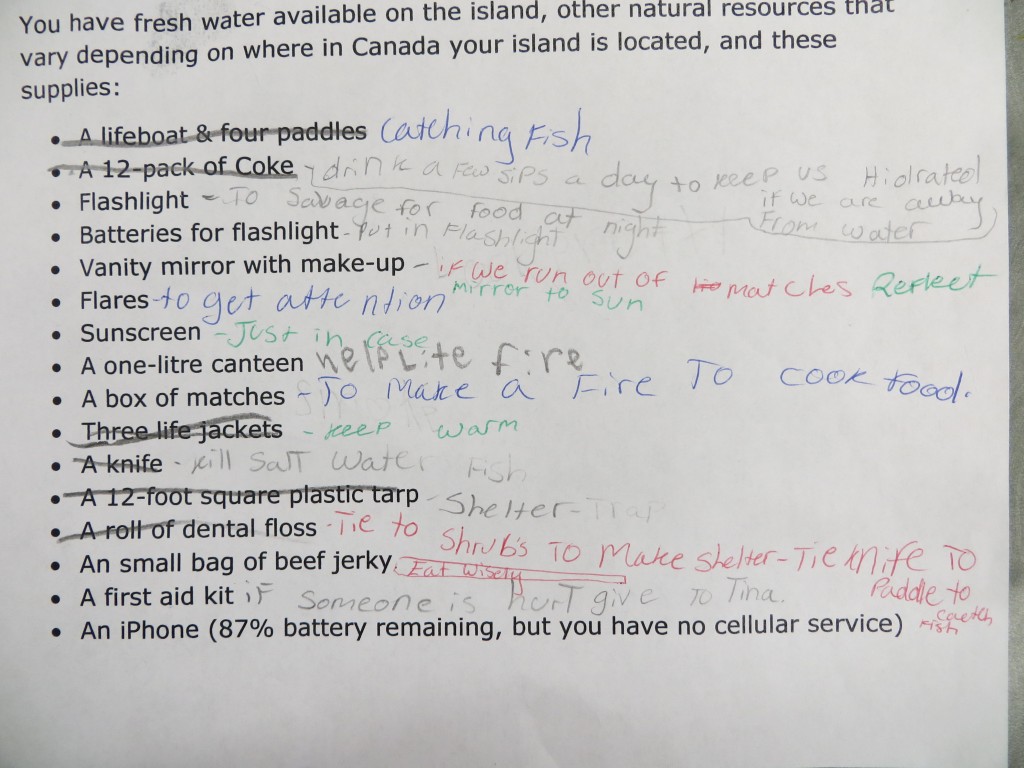 You have fresh water available on the island, other natural resources that
vary depending on where in Canada your island is located, and these
supplies:
• A lifeboat & four paddles Catching Fish
• A 12-pack of Coke - drink a Few sips a day to keep us Hidrated
if we are away
• Flashlight - To Savage for food at night From water
• Batteries for flashlight - Put in Flashlight
• Vanity mirror with make-up - iF we run out of matches Reflect
Mirror to Sun
• Flares - to get attention
• Sunscreen - Just in case
• A one-litre canteen help Lite fire
• A box of matches - To Make a Fire To cook food.
• Three life jackets - keep warm
• A knife - kill Salt Water Fish
• A 12-foot square plastic tarp - Shelter - Trap
• A roll of dental floss - Tie to Shrub's To Make Shelter - Tie Knife To
• An small bag of beef jerky. Eat Wisely Paddle to
• A first aid kit iF Someone is hurT give To Tina. caetch
• An iPhone (87% battery remaining, but you have no cellular service) Fish